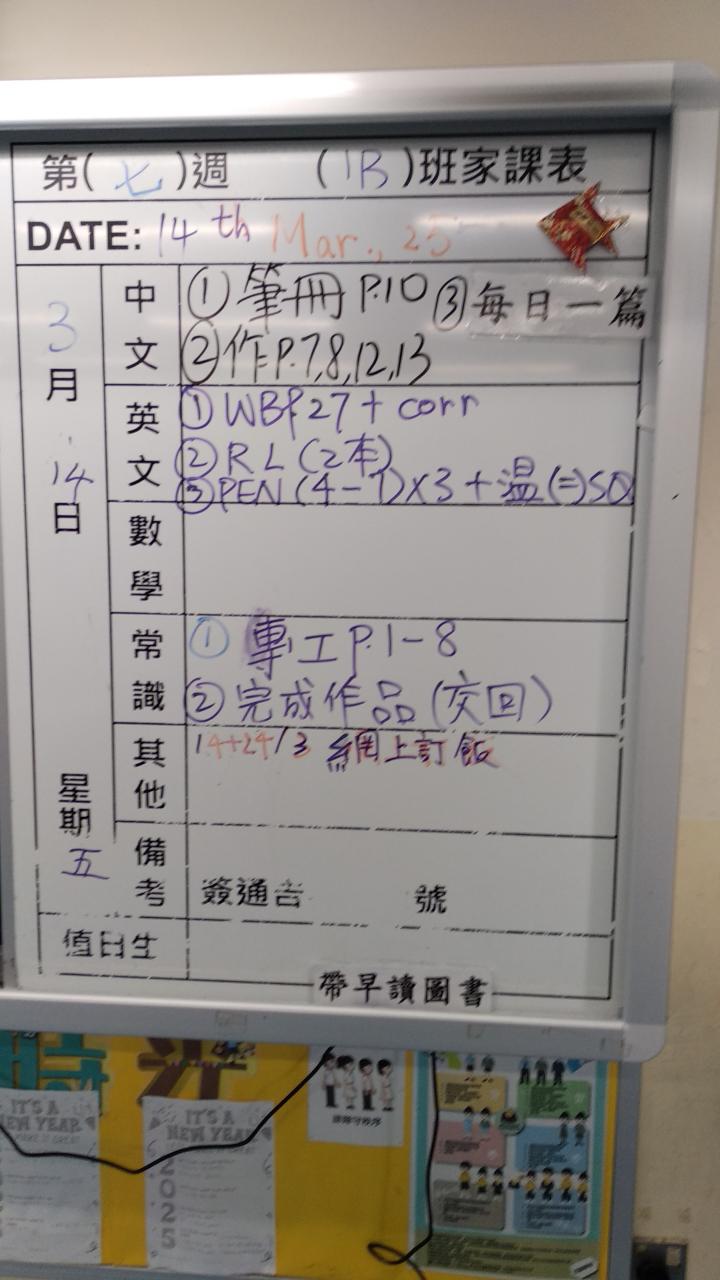 第(七)週 (1B)班家課表
DATE: 14th Mar., 25
3月14日
星期五
中文
①筆冊 P.10 ③每日一篇
②作P.7,8,12,13
英文
①WBP27 + corr
②RL (2本)
③PEN (4-7)x3 + 温(二)SQ
數學
常識
① 專工P.1-8
②完成作品(交回)
其他
14+24/3 網上訂飯
備考
簽通告 號
值日生
帶早讀圖書
IT'S A NEW YEAR
IT'S A
NEW YEAR
2025